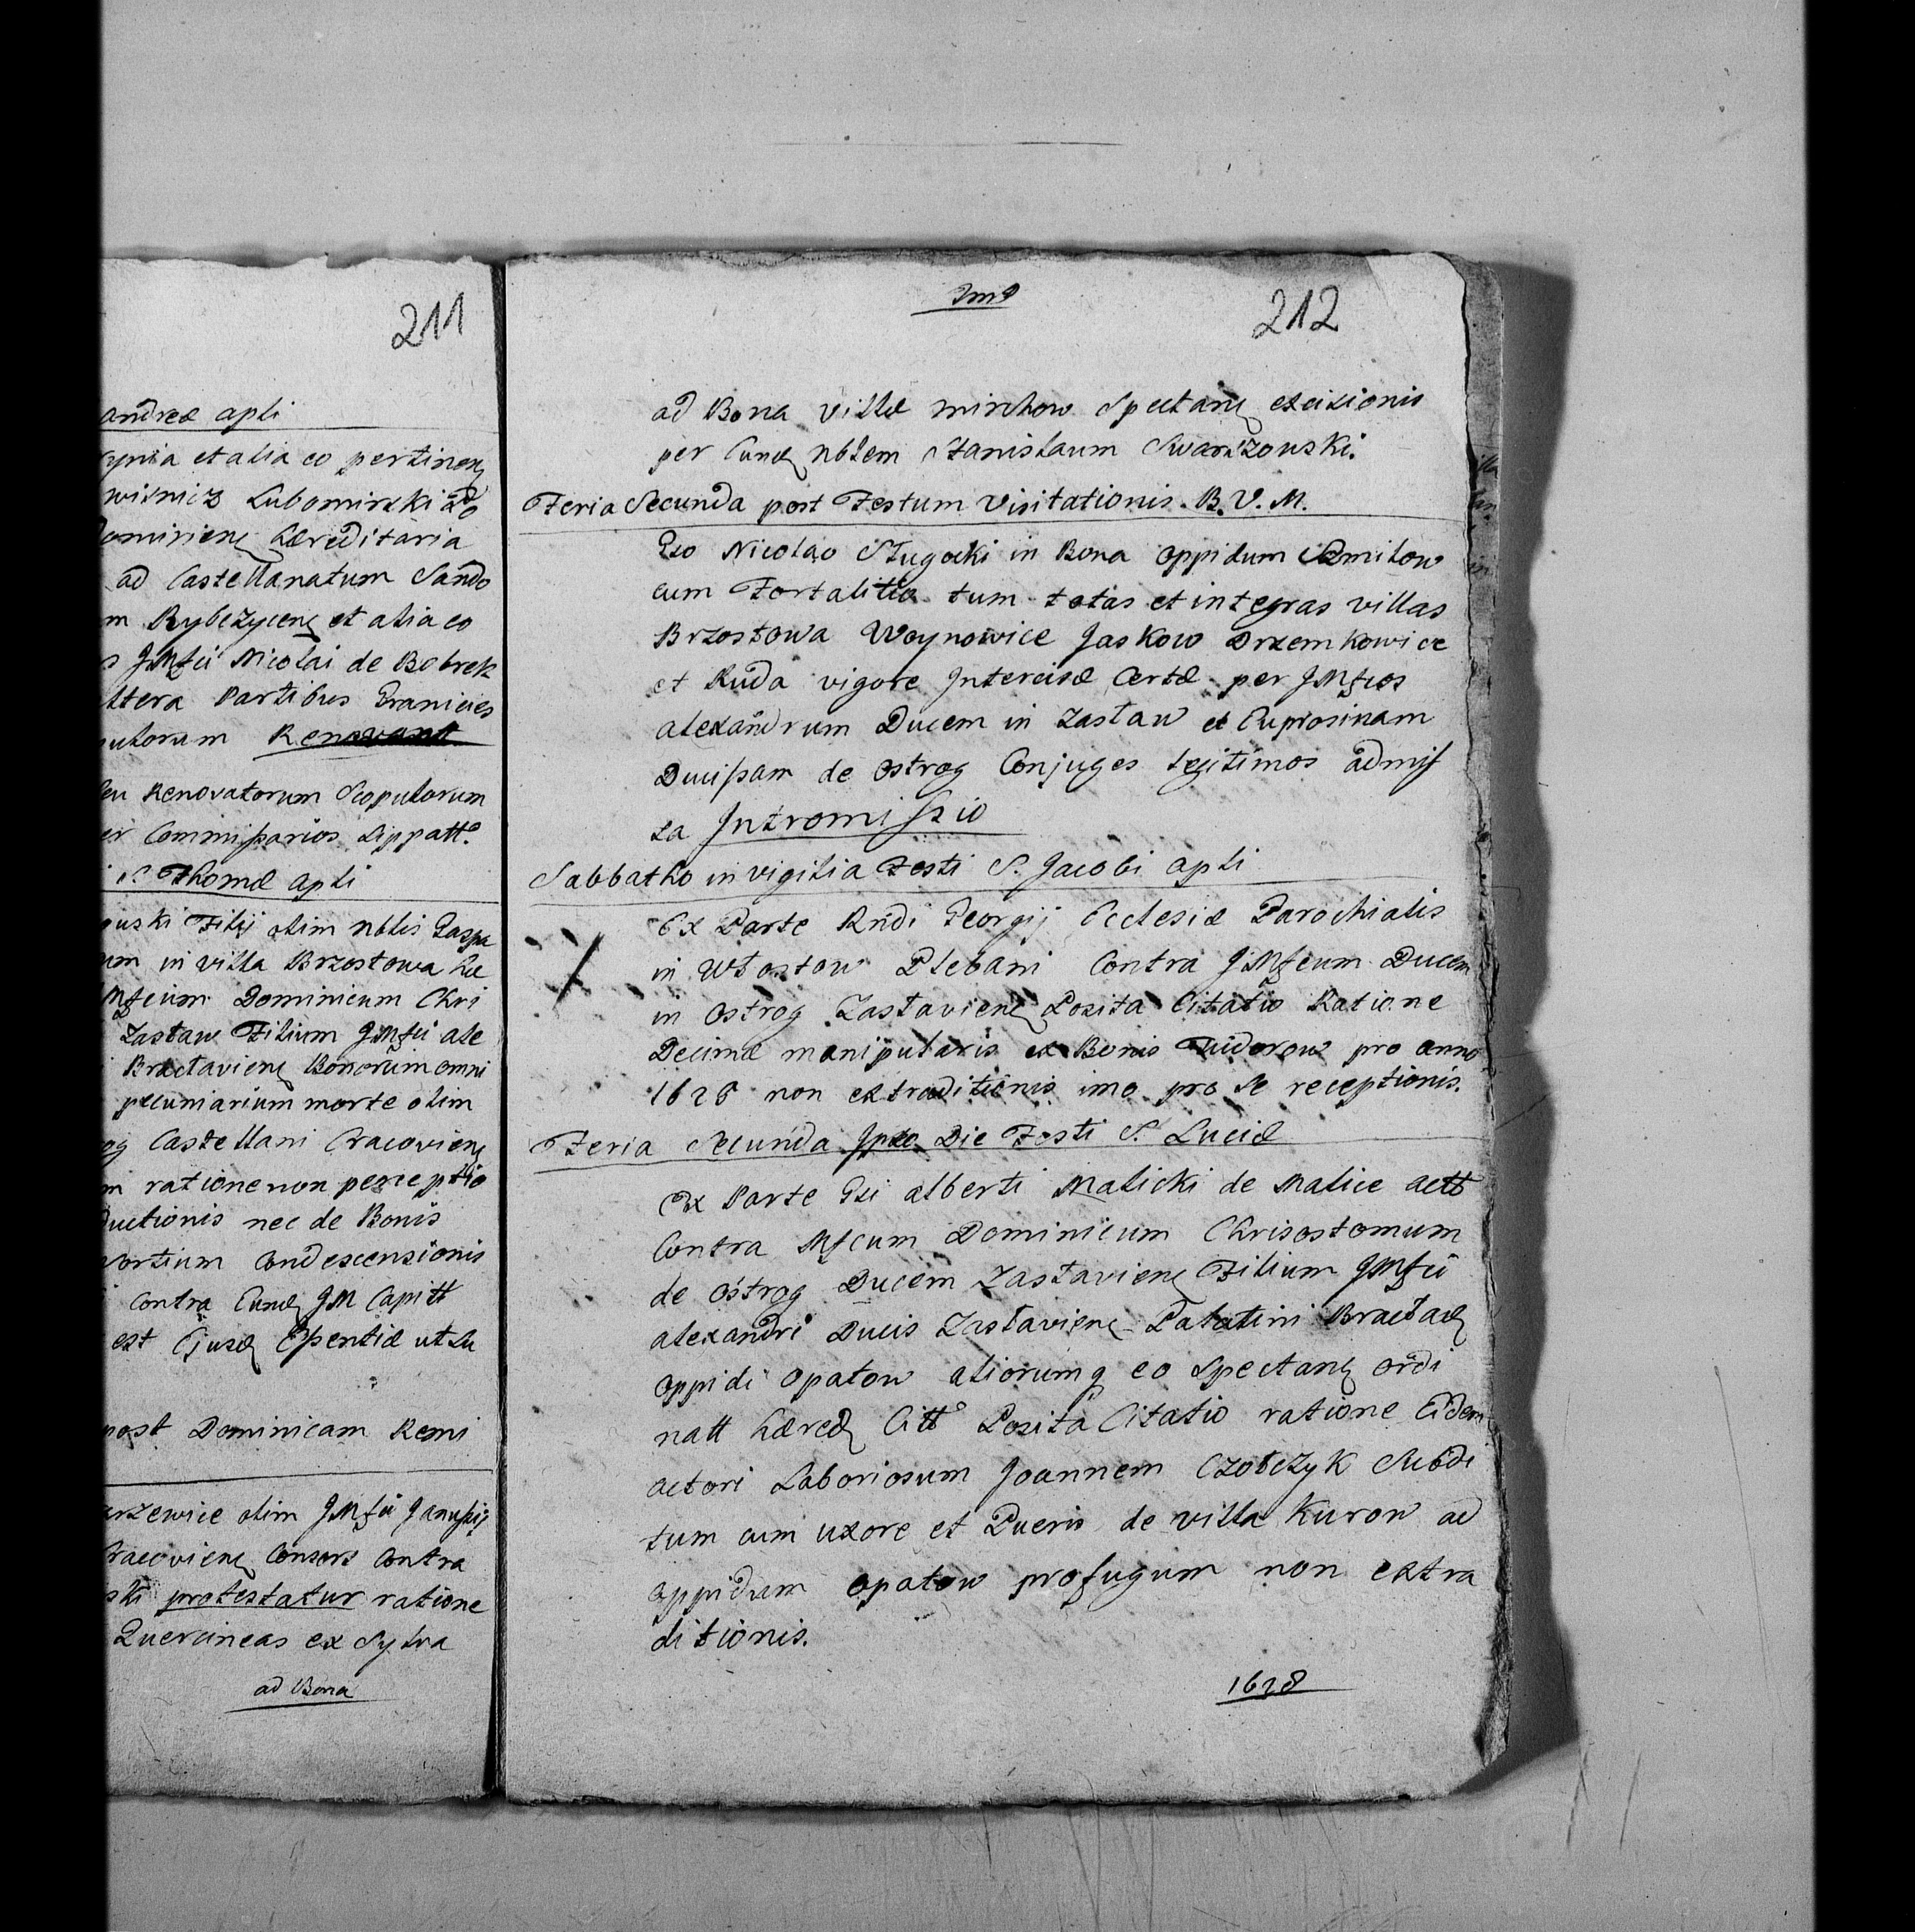 211
andreæ apli
et alia eo pertinen
wisnicz Lubomirski ad
hæreditaria
ad Castellanatum Sando
m Rybczycen et alia eo
JMfci Nicolai de Bobrek
ltera Partibus Granicies
utorum Renovant
eu Renovatorum Scopulorum
er Commissarios Lippatt.
S. Thomæ apli
uski Filij olim nblis Gaspa
um in villa Brzostowa hæ
Mfcum Dominicum Chri
Zasław Filium JMfci ale
Bractavien Bonorum omni
pecuniarium morte olim
og Castellani Cracovien
m ratione non perceptio
ductionis nec de Bonis
vortium Condescensionis
contra Eund JM Capitt
est Ejusd Essentiæ ut su
post Dominicam Remi
arzewice olim JMfci Janussij
Cracovien Consors Contra
ski protestatur ratione
Quercineas ex Sylva
ad Bona
212
ad Bona villæ mirchow Spectan excisionis
per Eund nblem Stanislaum Swarszowski.
Feria Secunda post Festum Visitationis B. V. M.
Gso Nicolao Sługocki in Bona oppidum Cmilow
cum Fortalitio tum totas et integras villas
Brzostowa Woynowice Jaskow Drzemkowice
et Ruda vigore Intercisæ Certæ per JMfcos
alexandrum Ducem in Zasław et Euprosinam
Ducissam de ostrog Conjuges legitimos admis
sa Intromissio
Sabbatho in vigilia Festi S. Jacobi apli
Ex Parte Rndi Georgij Ecclesiæ Parochialis
in Włostow Plebani Contra JMfcum Ducem
in ostrog Zaslavien Posita Citatio Ratione
Decimæ manipularis ex Bonis Tudorow pro anno
1626 non extraditionis imo pro se receptionis.
Feria Secunda Ipso Die Festi S. Luciæ
Ex Parte Gsi alberti Malicki de Malice actt
Contra Mfcum Dominicum Chrisostomum
de ostrog Ducem Zaslavien Filium JMfci
alexandri Ducis Zaslavien Palatini Braclav
oppidi opatow aliorumq eo Spectan ordi
natt hæred Citt Posita Citatio ratione Eidem
actori Laboriosum Joannem Czobczyk Subdi
tum cum uxore et Pueris de villa Kurow ad
oppidum opatow profugum non extra
ditionis.
1628